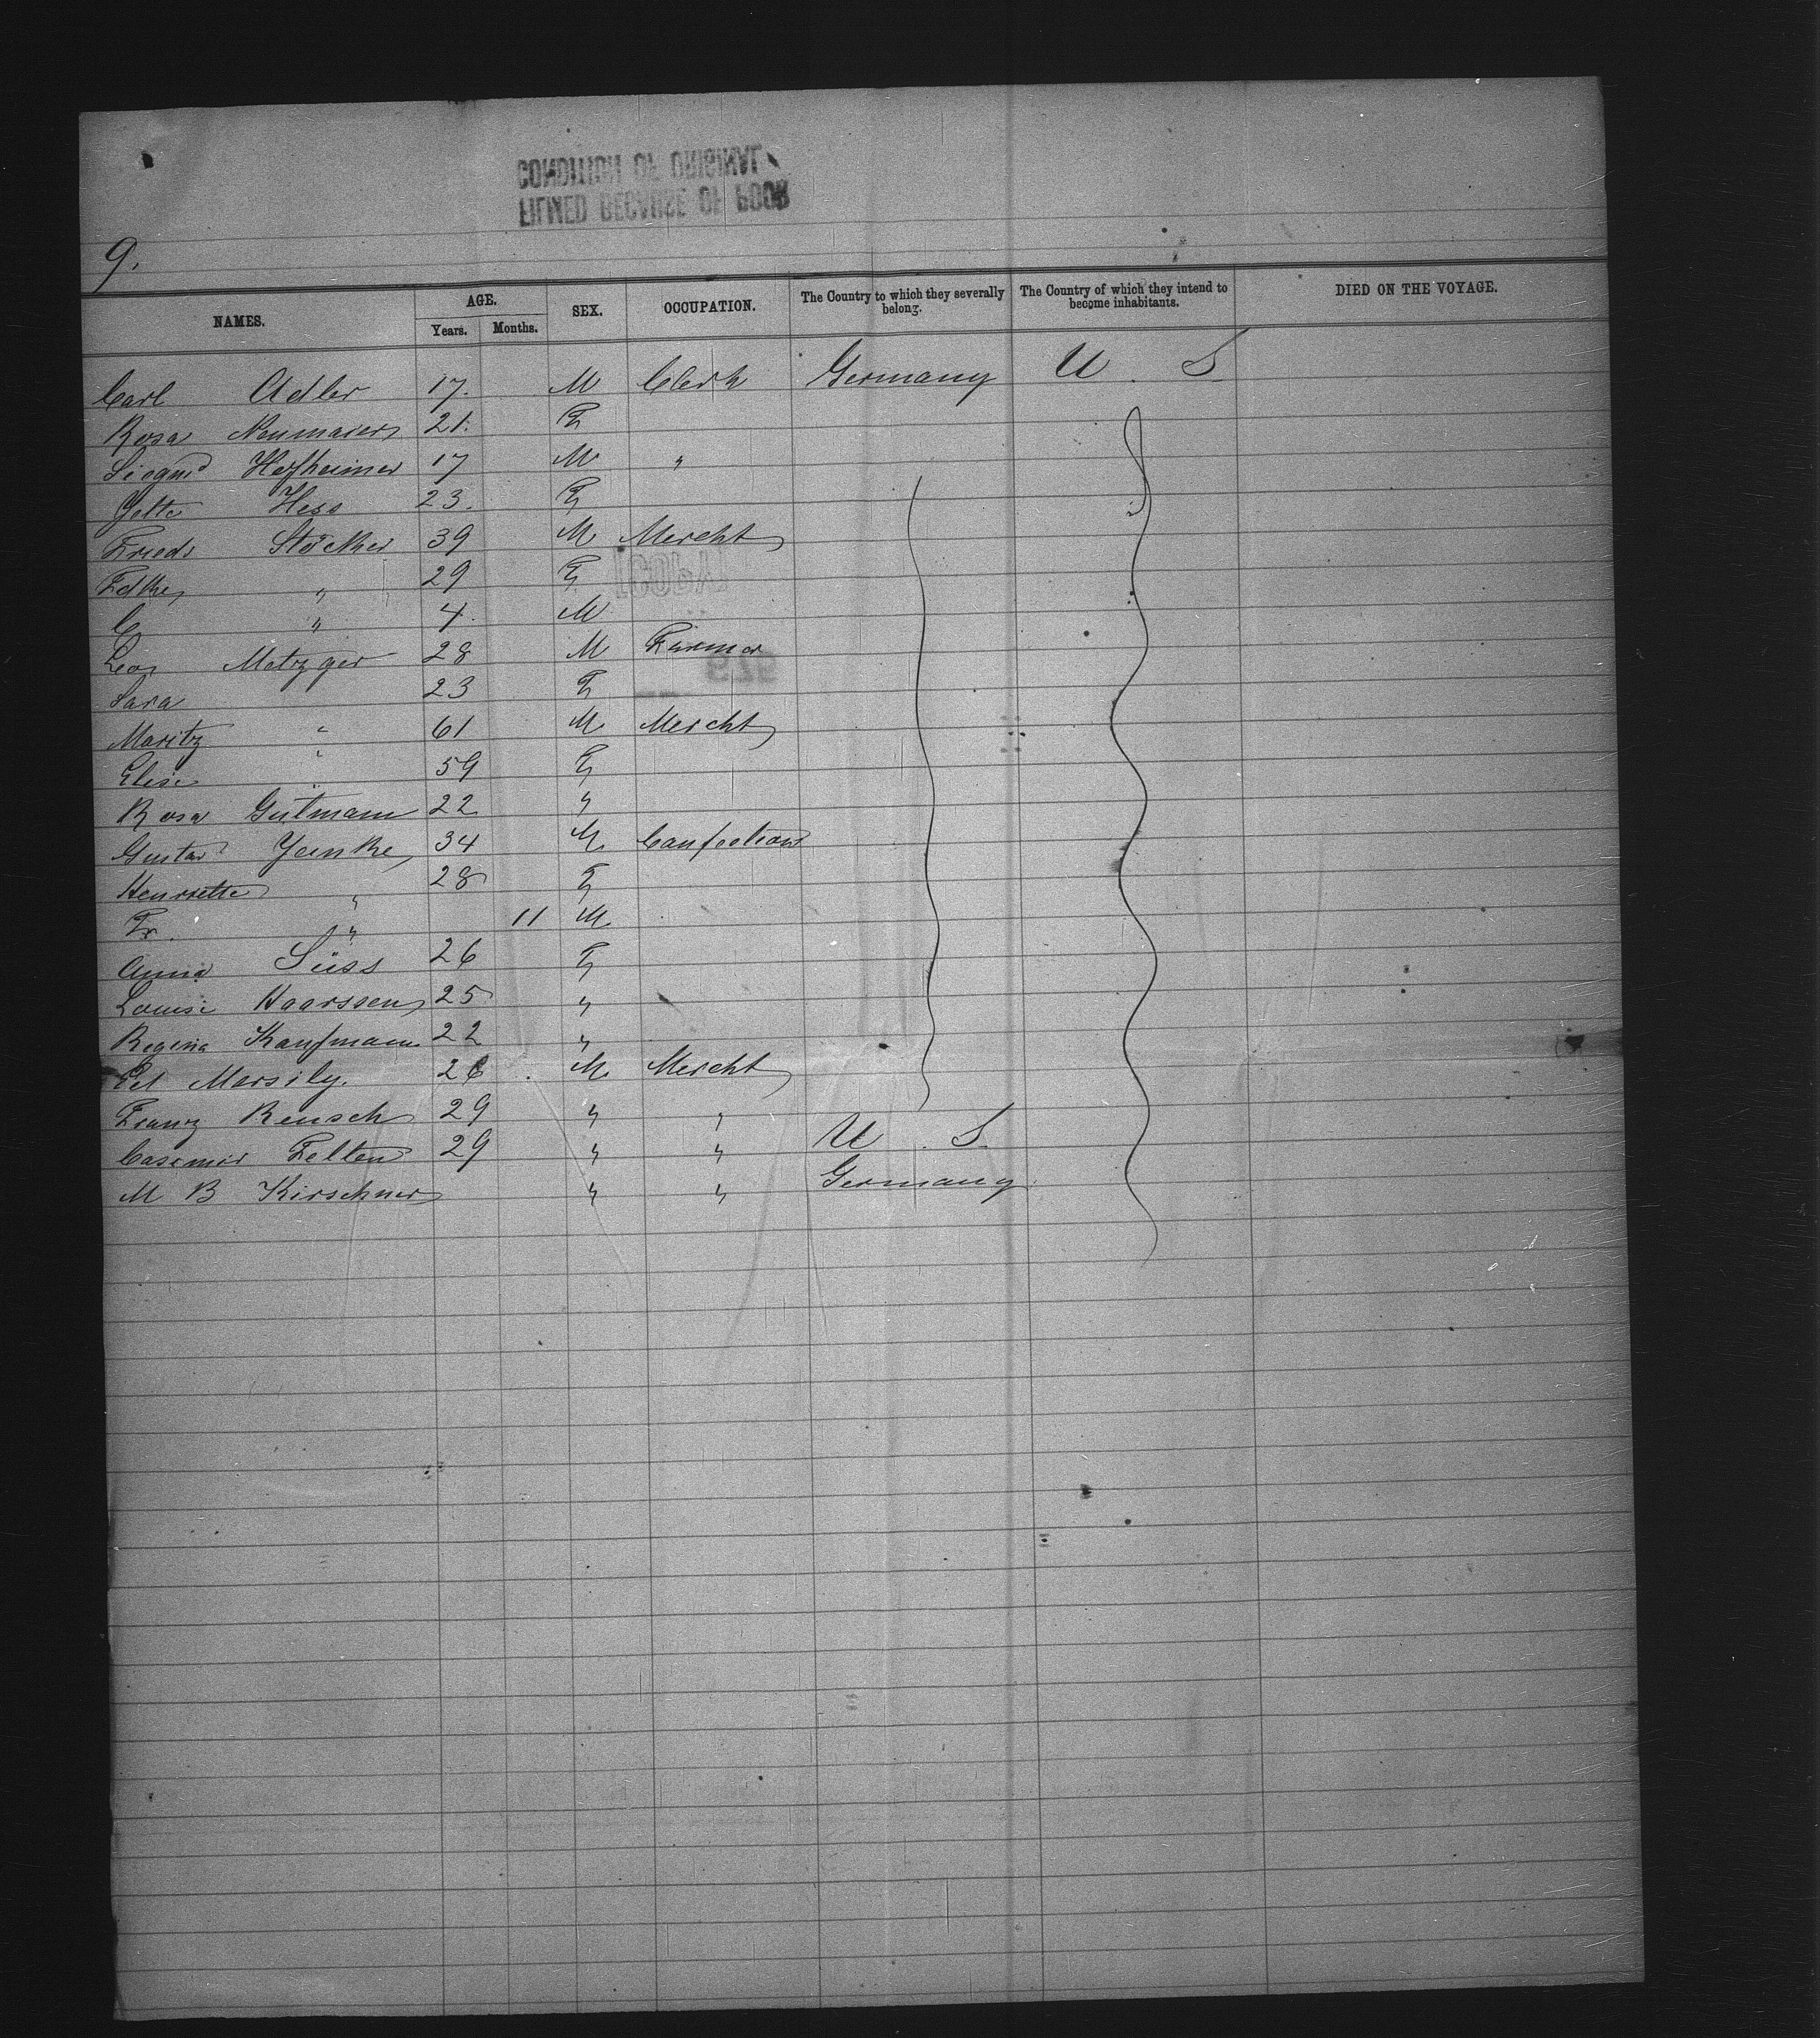 CONDITION OF ORIGINAL
FILMED BECAUSE OF POOR
9.
NAMES. AGE. Years. Months. SEX. OCCUPATION. The Country to which they severally belong. The Country of which they intend to become inhabitants. DIED ON THE VOYAGE.
Carl Adler 17. M Clerk Germany U. S.
Rosa Neumaier 21. F
Siegmd Hofheimer 17 M "
Jette Hess 23. F
Friedr Stöcker 39 M Mercht
" 29 F
C " 4. M
Leo Metzger 28 M Farmer
Sara 23 F
Moritz " 61 M Mercht
Elise " 59 F
Rosa Gutmann 22 "
Gustav 34 M Confection
Henriette " 28 F
Fr. " 11 M
Anna Süss 26 F
Louise Haarssen 25 "
Regina Kaufmann 22 "
Ed Marsily. 26 M Mercht
Franz Reusch 29 " "
Casimir Felten 29 " " U. S.
M B Kirschner " " Germany